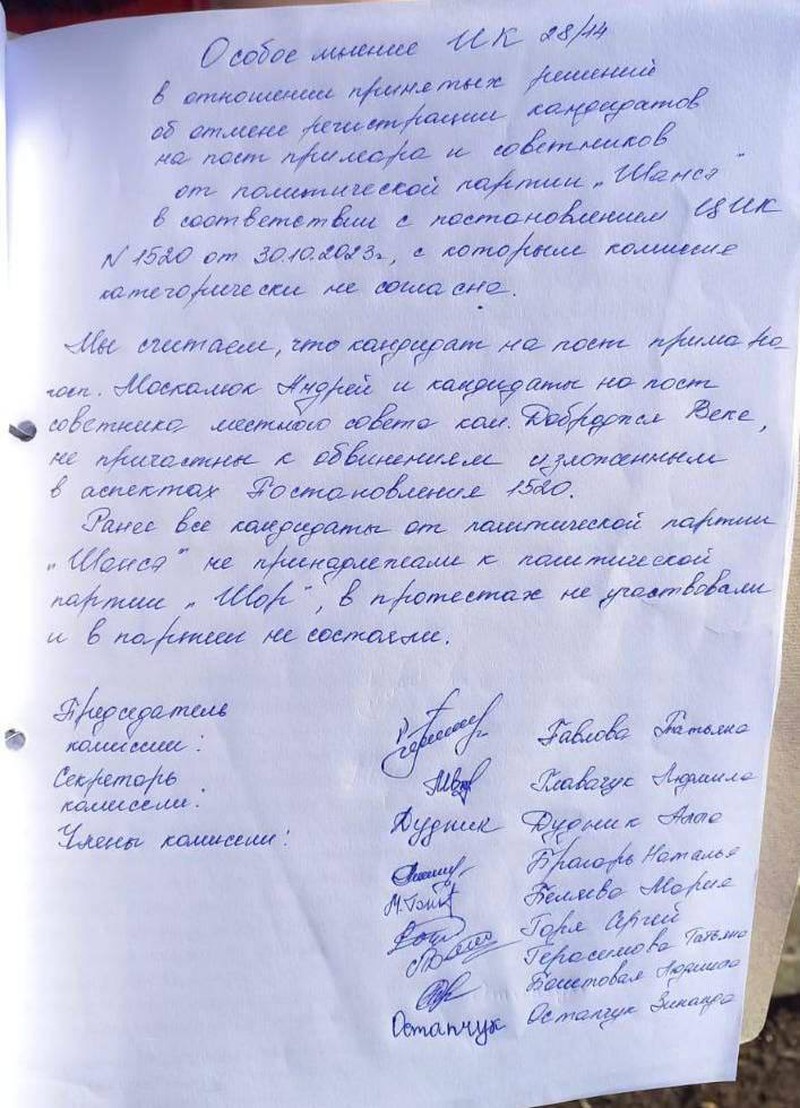 Особое мнение ИК 28/44
в отношении принятых решений
об отмене регистрации кандидатов
на пост примара и советников
от политической партии „Шансэ"
в соответствии с постановлением ЦИК
N 1520 от 30.10.2023г, с которым комиссия
категорически не согласна.
Мы считаем, что кандидат на пост примара
госп. Москалюк Андрей и кандидаты на пост
советника местного совета ком. Доброджя Веке,
не причастны к обвинениям изложенным
в аспектах Постановления 1520.
Ранее все кандидаты от политической партии
„Шансэ" не принадлежали к политической
партии „Шор", в протестах не участвовали
и в партии не состояли.
Председатель
комиссии: Павлова Татьяна
Секретарь
комиссии: Главачук Людмила
Члены комиссии: Дудник Дудник Алла
Наталья
Беляева Мария
Горя Сергей
Герасимова Татьяна
Людмила
Остапчук Остапчук Зинаида